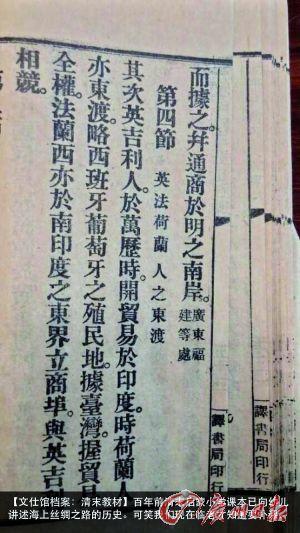 譯書局印行
譯書局印行
而據之。幷通商於明之南岸。廣東福建等處
第四節 英法荷蘭人之東渡
其次英吉利人。於萬歷時。開貿易於印度。時荷蘭人
亦東渡。略西班牙葡萄牙之殖民地。據臺灣。握貿
全權。法蘭西亦於南印度之東界立商埠。與英吉
相競。
【文仕馆档案：清末教材】百年前 启蒙小学课本已向幼儿
讲述海上丝绸之路的历史。可笑我们现在临老方知还要补
广州日报